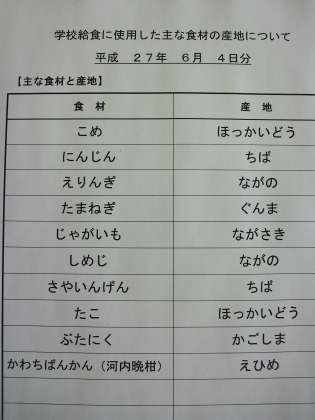 学校給食に使用した主な食材の産地について
平成 27年 6月 4日分
【主な食材と産地】
食 材 産 地
こめ ほっかいどう
にんじん ちば
えりんぎ ながの
たまねぎ ぐんま
じゃがいも ながさき
しめじ ながの
さやいんげん ちば
たこ ほっかいどう
ぶたにく かごしま
かわちばんかん（河内晩柑） えひめ